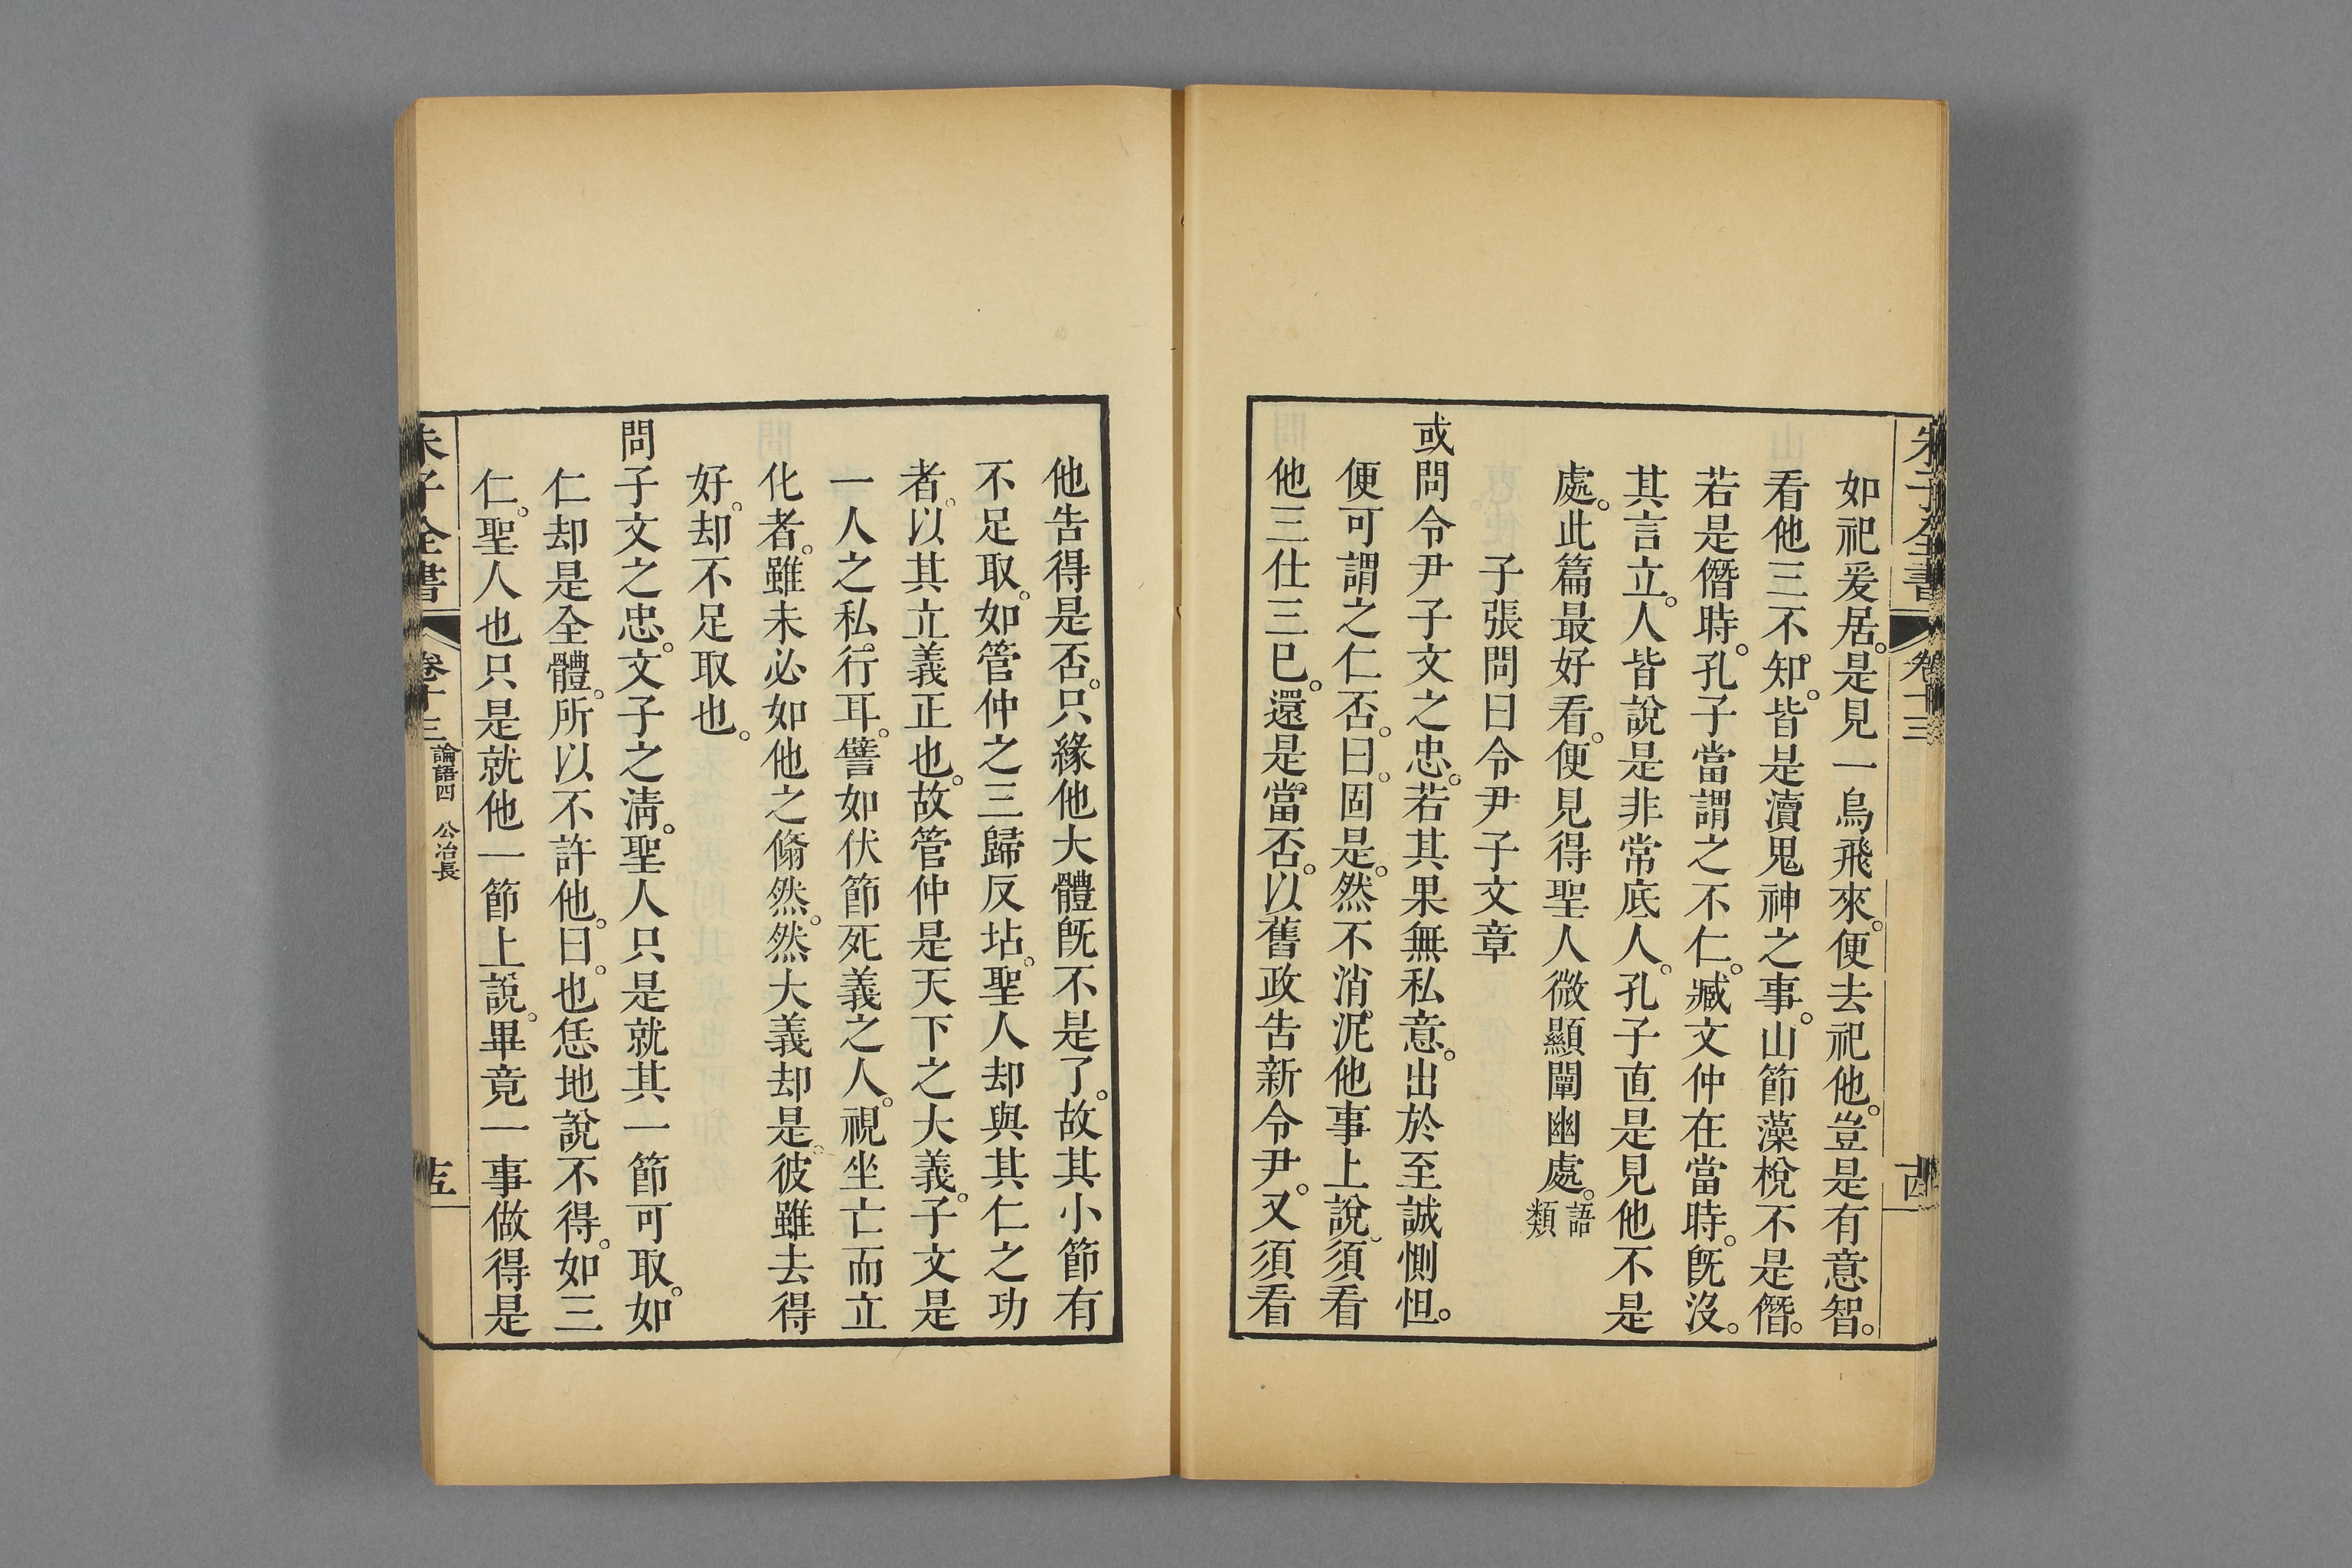 朱子全書 卷十三
如祀爰居。是見一鳥飛來。便去祀他。豈是有意智。
看他三不知。皆是瀆鬼神之事。山節藻梲不是僭。
若是僭時。孔子當謂之不仁。臧文仲在當時。旣沒。
其言立。人皆說是非常底人。孔子直是見他不是
處。此篇最好看。便見得聖人微顯闡幽處。語類
子張問曰令尹子文章
或問令尹子文之忠。若其果無私意。出於至誠惻怛。
便可謂之仁否。曰。固是。然不消泥他事上說。須看
他三仕三已。還是當否。以舊政告新令尹。又須看
他告得是否。只緣他大體旣不是了。故其小節有
不足取。如管仲之三歸反坫。聖人却與其仁之功
者。以其立義正也。故管仲是天下之大義。子文是
一人之私行耳。譬如伏節死義之人。視坐亡而立
化者。雖未必如他之翛然。然大義却是。彼雖去得
好。却不足取也。
問子文之忠。文子之淸。聖人只是就其一節可取。如
仁却是全體。所以不許他。曰。也恁地說不得。如三
仁。聖人也只是就他一節上說。畢竟一事做得是
朱子全書 卷十三 論語四 公冶長